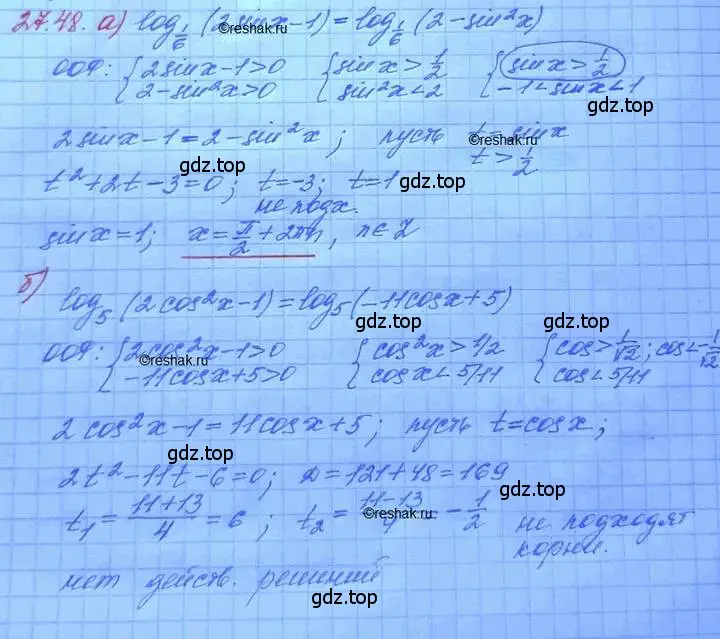 27.48. а) log_{1/6} (2sinx-1) = log_{1/6} (2-sin²x)
©reshak.ru
ООФ: { 2sinx-1>0 { sinx>1/2 { sinx>1/2
2-sin²x>0 sin²x<2 -1<sinx<1
2sinx-1=2-sin²x; пусть t=sinx
©reshak.ru
t>1/2
gdz.top
t²+2t-3=0; t=-3; t=1
gdz.top
не подх.
sinx=1; x=π/2+2πn, n∈Z
б)
log₅(2cos²x-1)=log₅(-11cosx+5)
gdz.top gdz.top
ООФ: { 2cos²x-1>0 { cos²x>1/2 { cos>1/√2; cos<-1/√2
©reshak.ru
-11cosx+5>0 cosx<5/11 cos<5/11
2cos²x-1=11cosx+5; пусть t=cosx;
gdz.top
2t²-11t-6=0; D=121+48=169
gdz.top
t₁=(11+13)/4=6; t₂=(11-13)/4=-1/2 не подходят
©reshak.ru
корни.
нет действ. решений
gdz.top